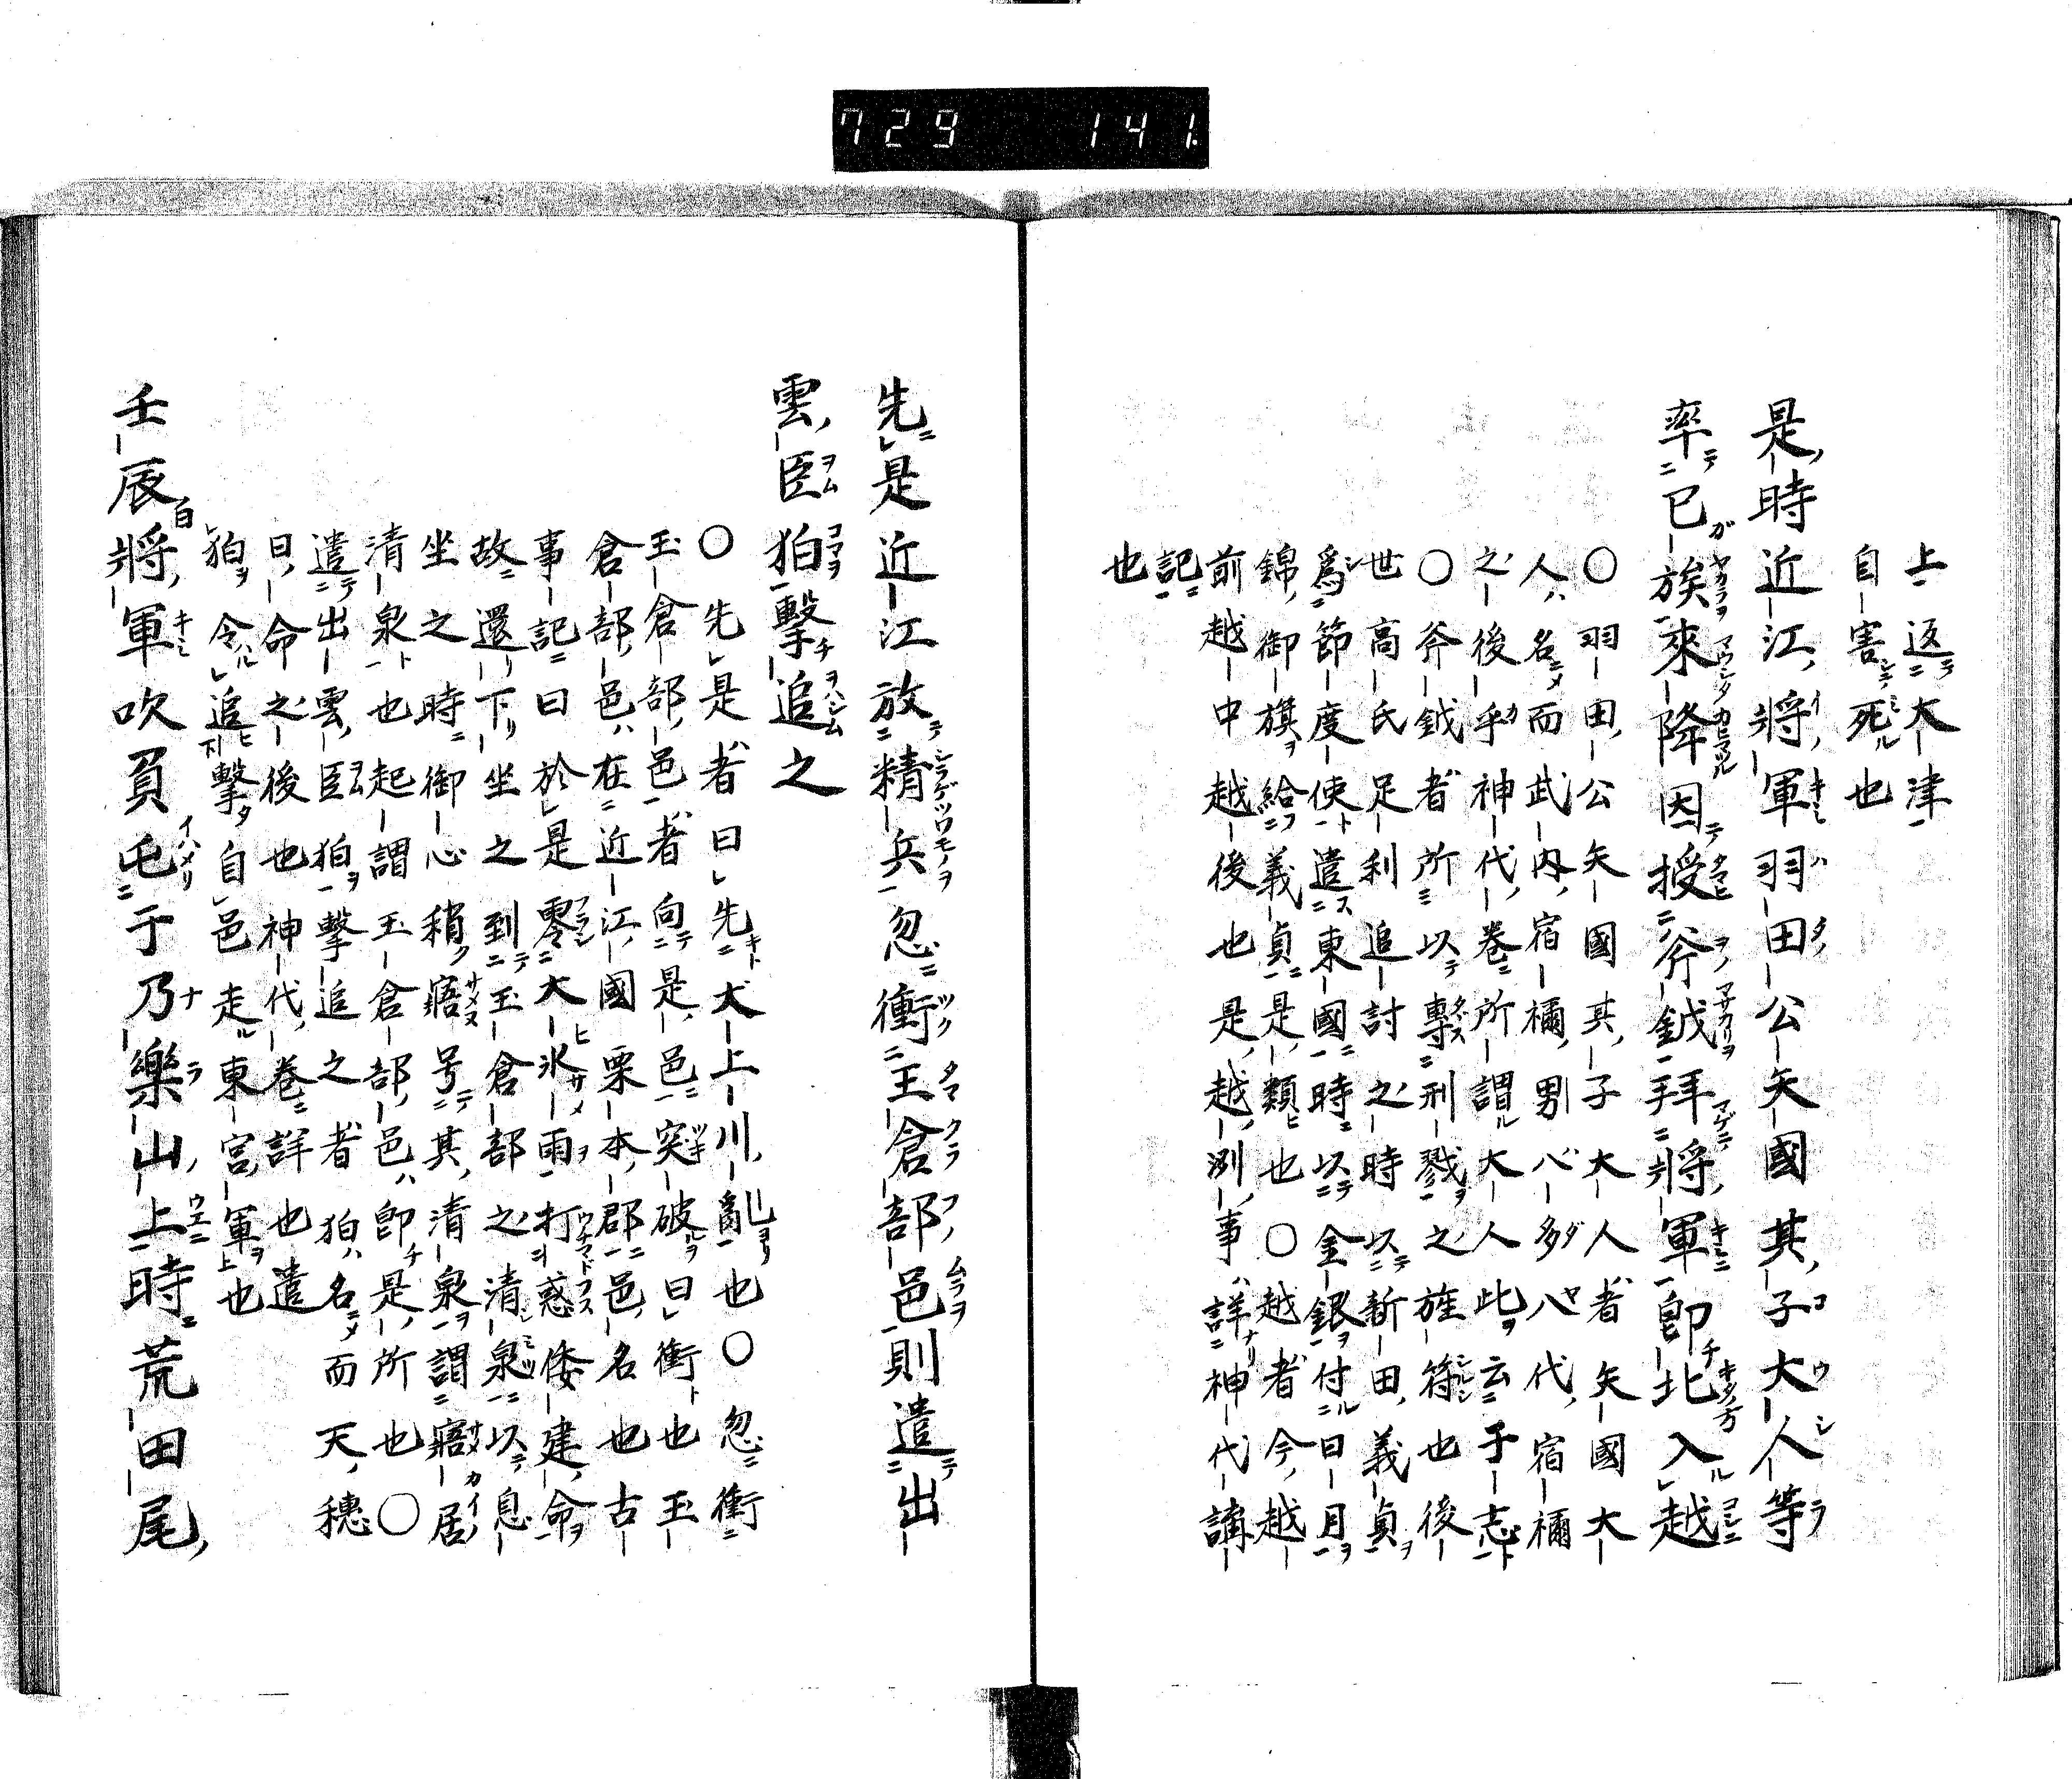 729 141
上返大津
自害死也
是時近江将軍羽田公矢國其子大人等
率已族來降因授斧鉞拜将軍即北入越
〇羽田公矢國其子大人者矢國大
人名而武内宿禰男八多八代宿禰
之後乎神代卷所謂大人此云于志
〇斧鉞者所以專刑戮之旌符也後
世高氏足利追討之時以新田義貞
爲節度使遣東國時以金銀付日月
錦御旗給義貞是類也〇越者今越
前越中越後也是越洲事詳神代講
記
也
先是近江放精兵忽衝玉倉部邑則遣出
雲臣狛擊追之
〇先是者曰先犬上川亂也〇忽衝
玉倉部邑者向是邑突破曰衝也玉
倉部邑在近江國栗本郡邑名也古
事記曰於是零大氷雨打惑倭建命
故還下坐之到玉倉部之清泉以息
坐之時御心稍寤号其清泉謂寤居
清泉也起謂玉倉部邑即是所也〇
遣出雲臣狛擊追之者狛名而天穂
日命之後也神代卷詳也遣
狛令追擊自邑走東宮軍也
壬辰将軍吹負屯于乃樂山上時荒田尾